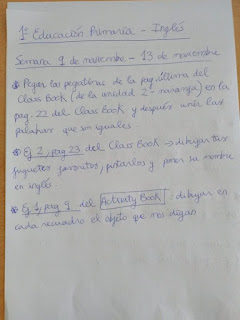 1º Educación Primaria - Inglés
Semana 9 de noviembre - 13 de noviembre
* Pegar las pegatinas de la pag. última del
Class Book (de la unidad 2 - naranja) en la
pag. 23 del Class Book y después unir las
palabras que son iguales.
* Ej 2, pag 23 del Class Book → dibujar tus
juguetes favoritos, pintarlos y poner su nombre
en inglés.
* Ej 1, pag 9 del Activity Book : dibujar en
cada recuadro el objeto que nos digan